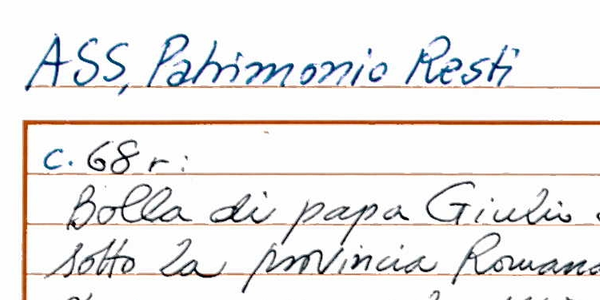 ASS, Patrimonio Resti
c. 68 r:
Bolla di papa Giulio
sotto la provincia Romana